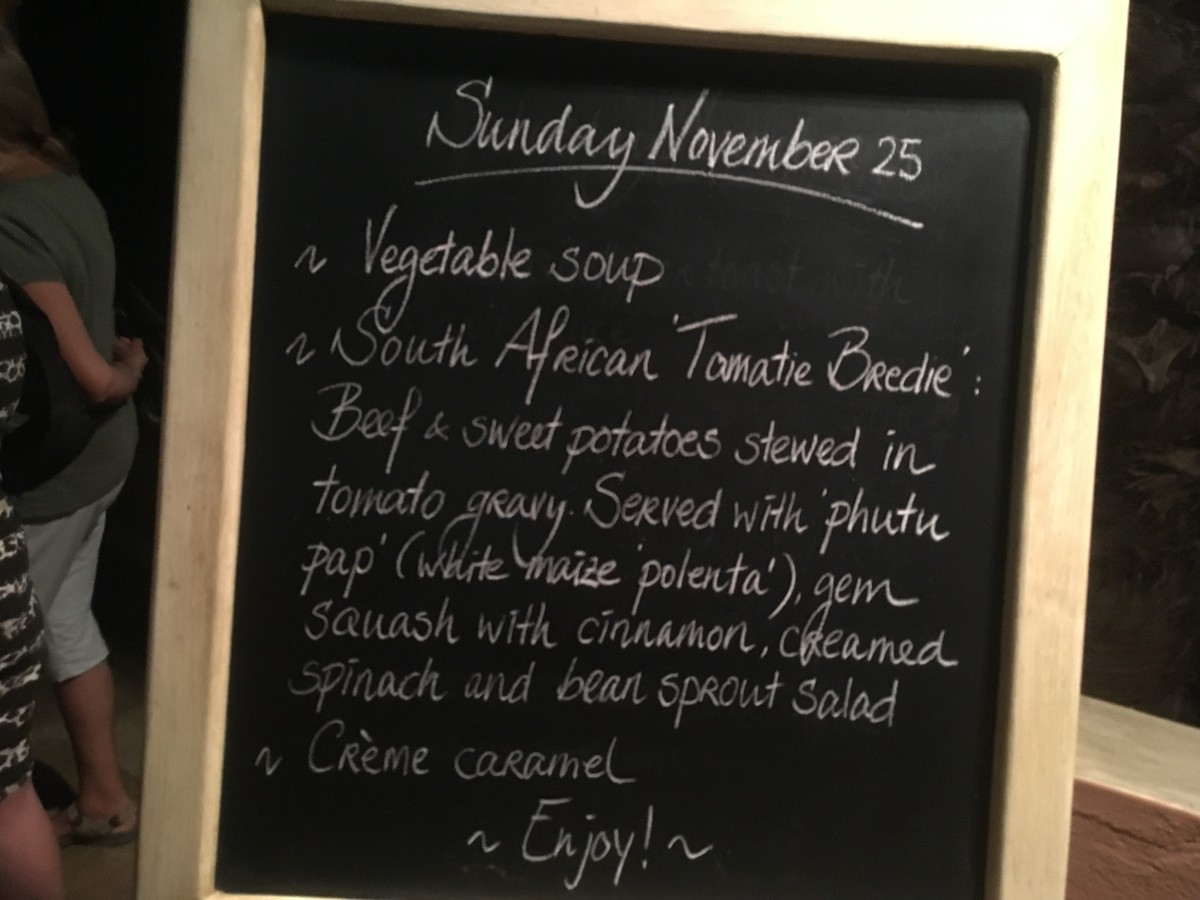 Sunday November 25
~ Vegetable soup
~ South African 'Tamatie Bredie':
Beef & sweet potatoes stewed in
tomato gravy. Served with 'phutu
pap' (white maize 'polenta'), gem
squash with cinnamon, creamed
spinach and bean sprout salad
~ Crème caramel
~ Enjoy! ~